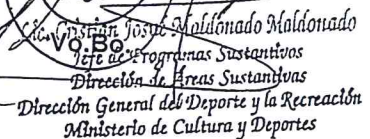 Lic. Cristian Josué Maldonado Maldonado
Vo.Bo.
Jefe de Programas Sustantivos
Dirección de Áreas Sustantivas
Dirección General del Deporte y la Recreación
Ministerio de Cultura y Deportes